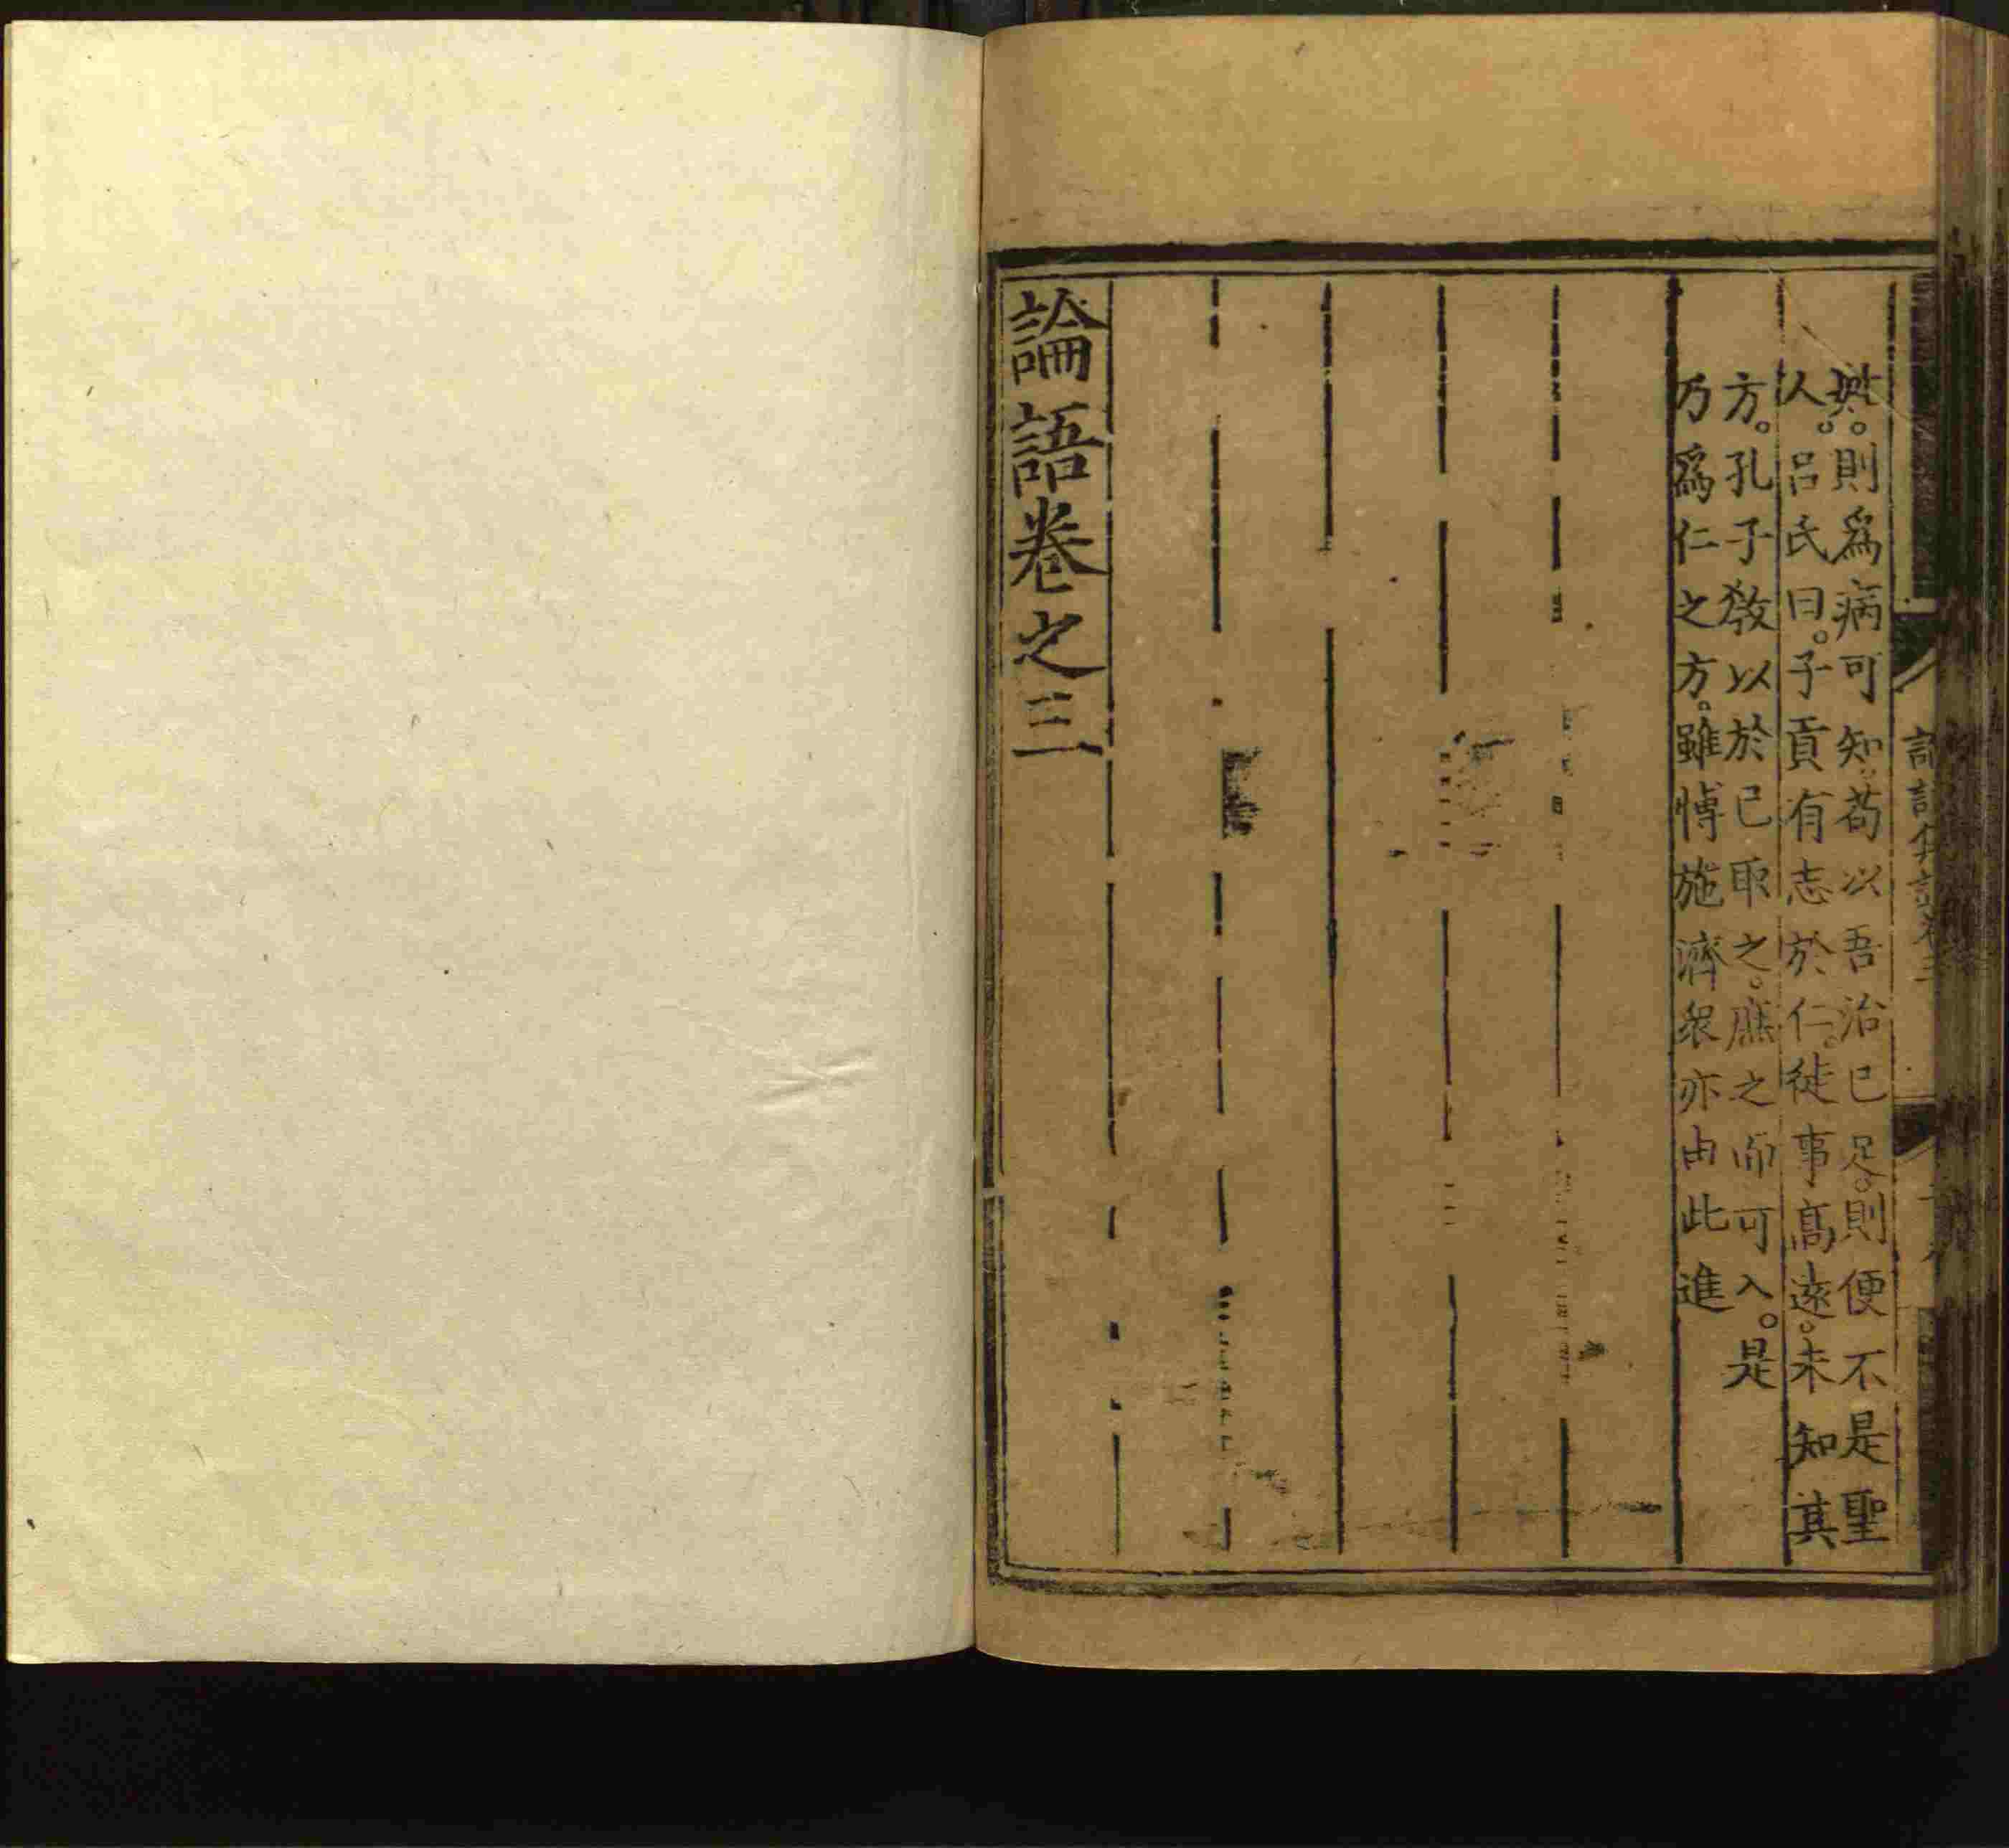 則爲病可知。苟以吾治已足。則便不是聖
人。呂氏曰。子貢有志於仁。徒事高遠。未知其
方。孔子敎以於已取之。庶之而可入。是
乃爲仁之方。雖愽施濟衆亦由此進
論語卷之三